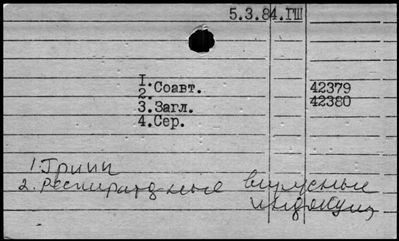 5.3.84.ГШ
1.
2.Соавт. 42379
3.Загл. 42380
4.Сер.
1. Грипп
2. Респираторные вирусные
инфекции